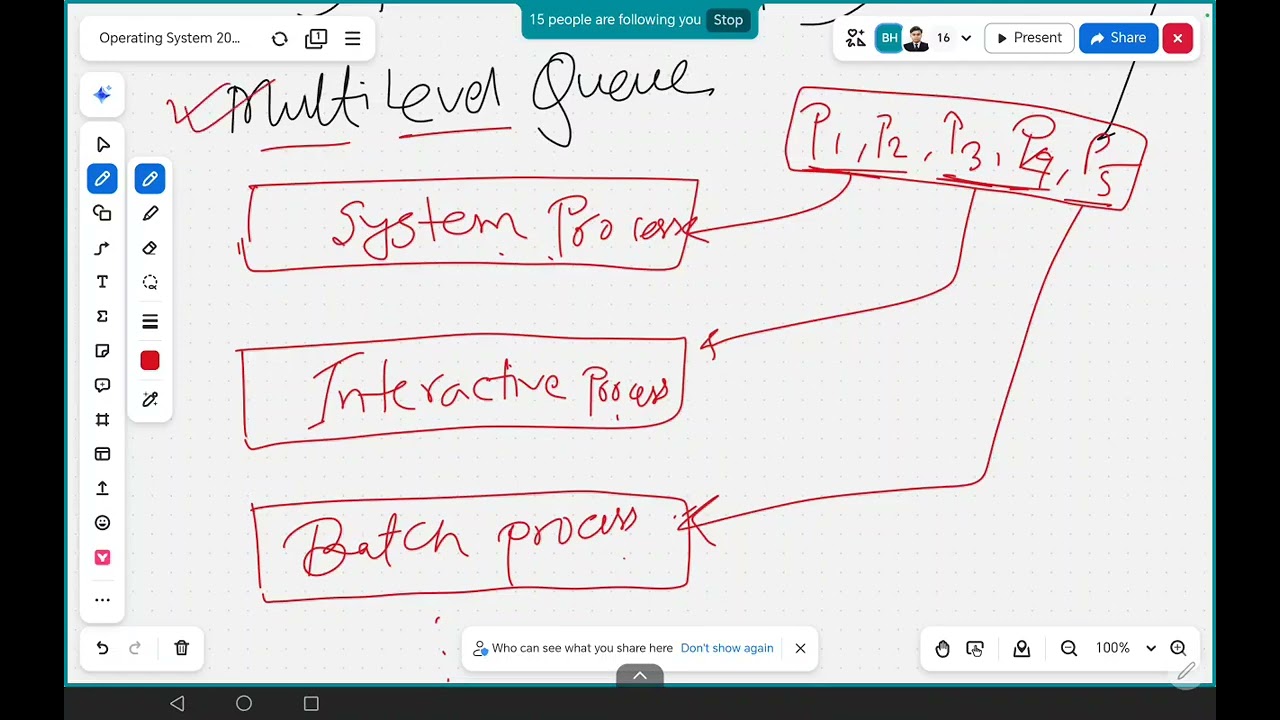 15 people are following you Stop
Operating System 20... 1
BH 16 Present Share
MultiLevel Queue
P1, P2, P3, P4, P5
System Process
T
Interactive Process
Batch process
Who can see what you share here Don't show again
100%